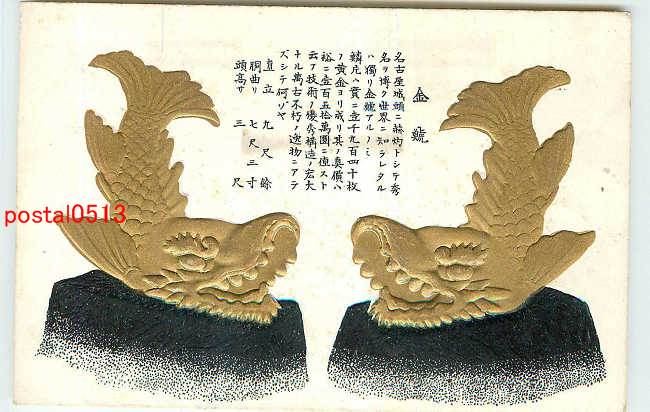 金鯱
名古屋城頭ニ赫灼トシテ秀
名ヲ博ク世界ニ知ラレタル
ハ獨リ金鯱アルノミ
鱗片ハ實ニ壹千九百四十枚
ノ黄金ヨリ成リ其ノ眞價ハ
裕ニ壹百五拾萬圓ニ値スト
云フ技術ノ優秀構造ノ宏大
ナル萬古不朽ノ逸物ニアラ
ズシテ何ゾヤ
直立 九尺餘
胴曲リ 七尺三寸
頭高サ 三尺
postal0513